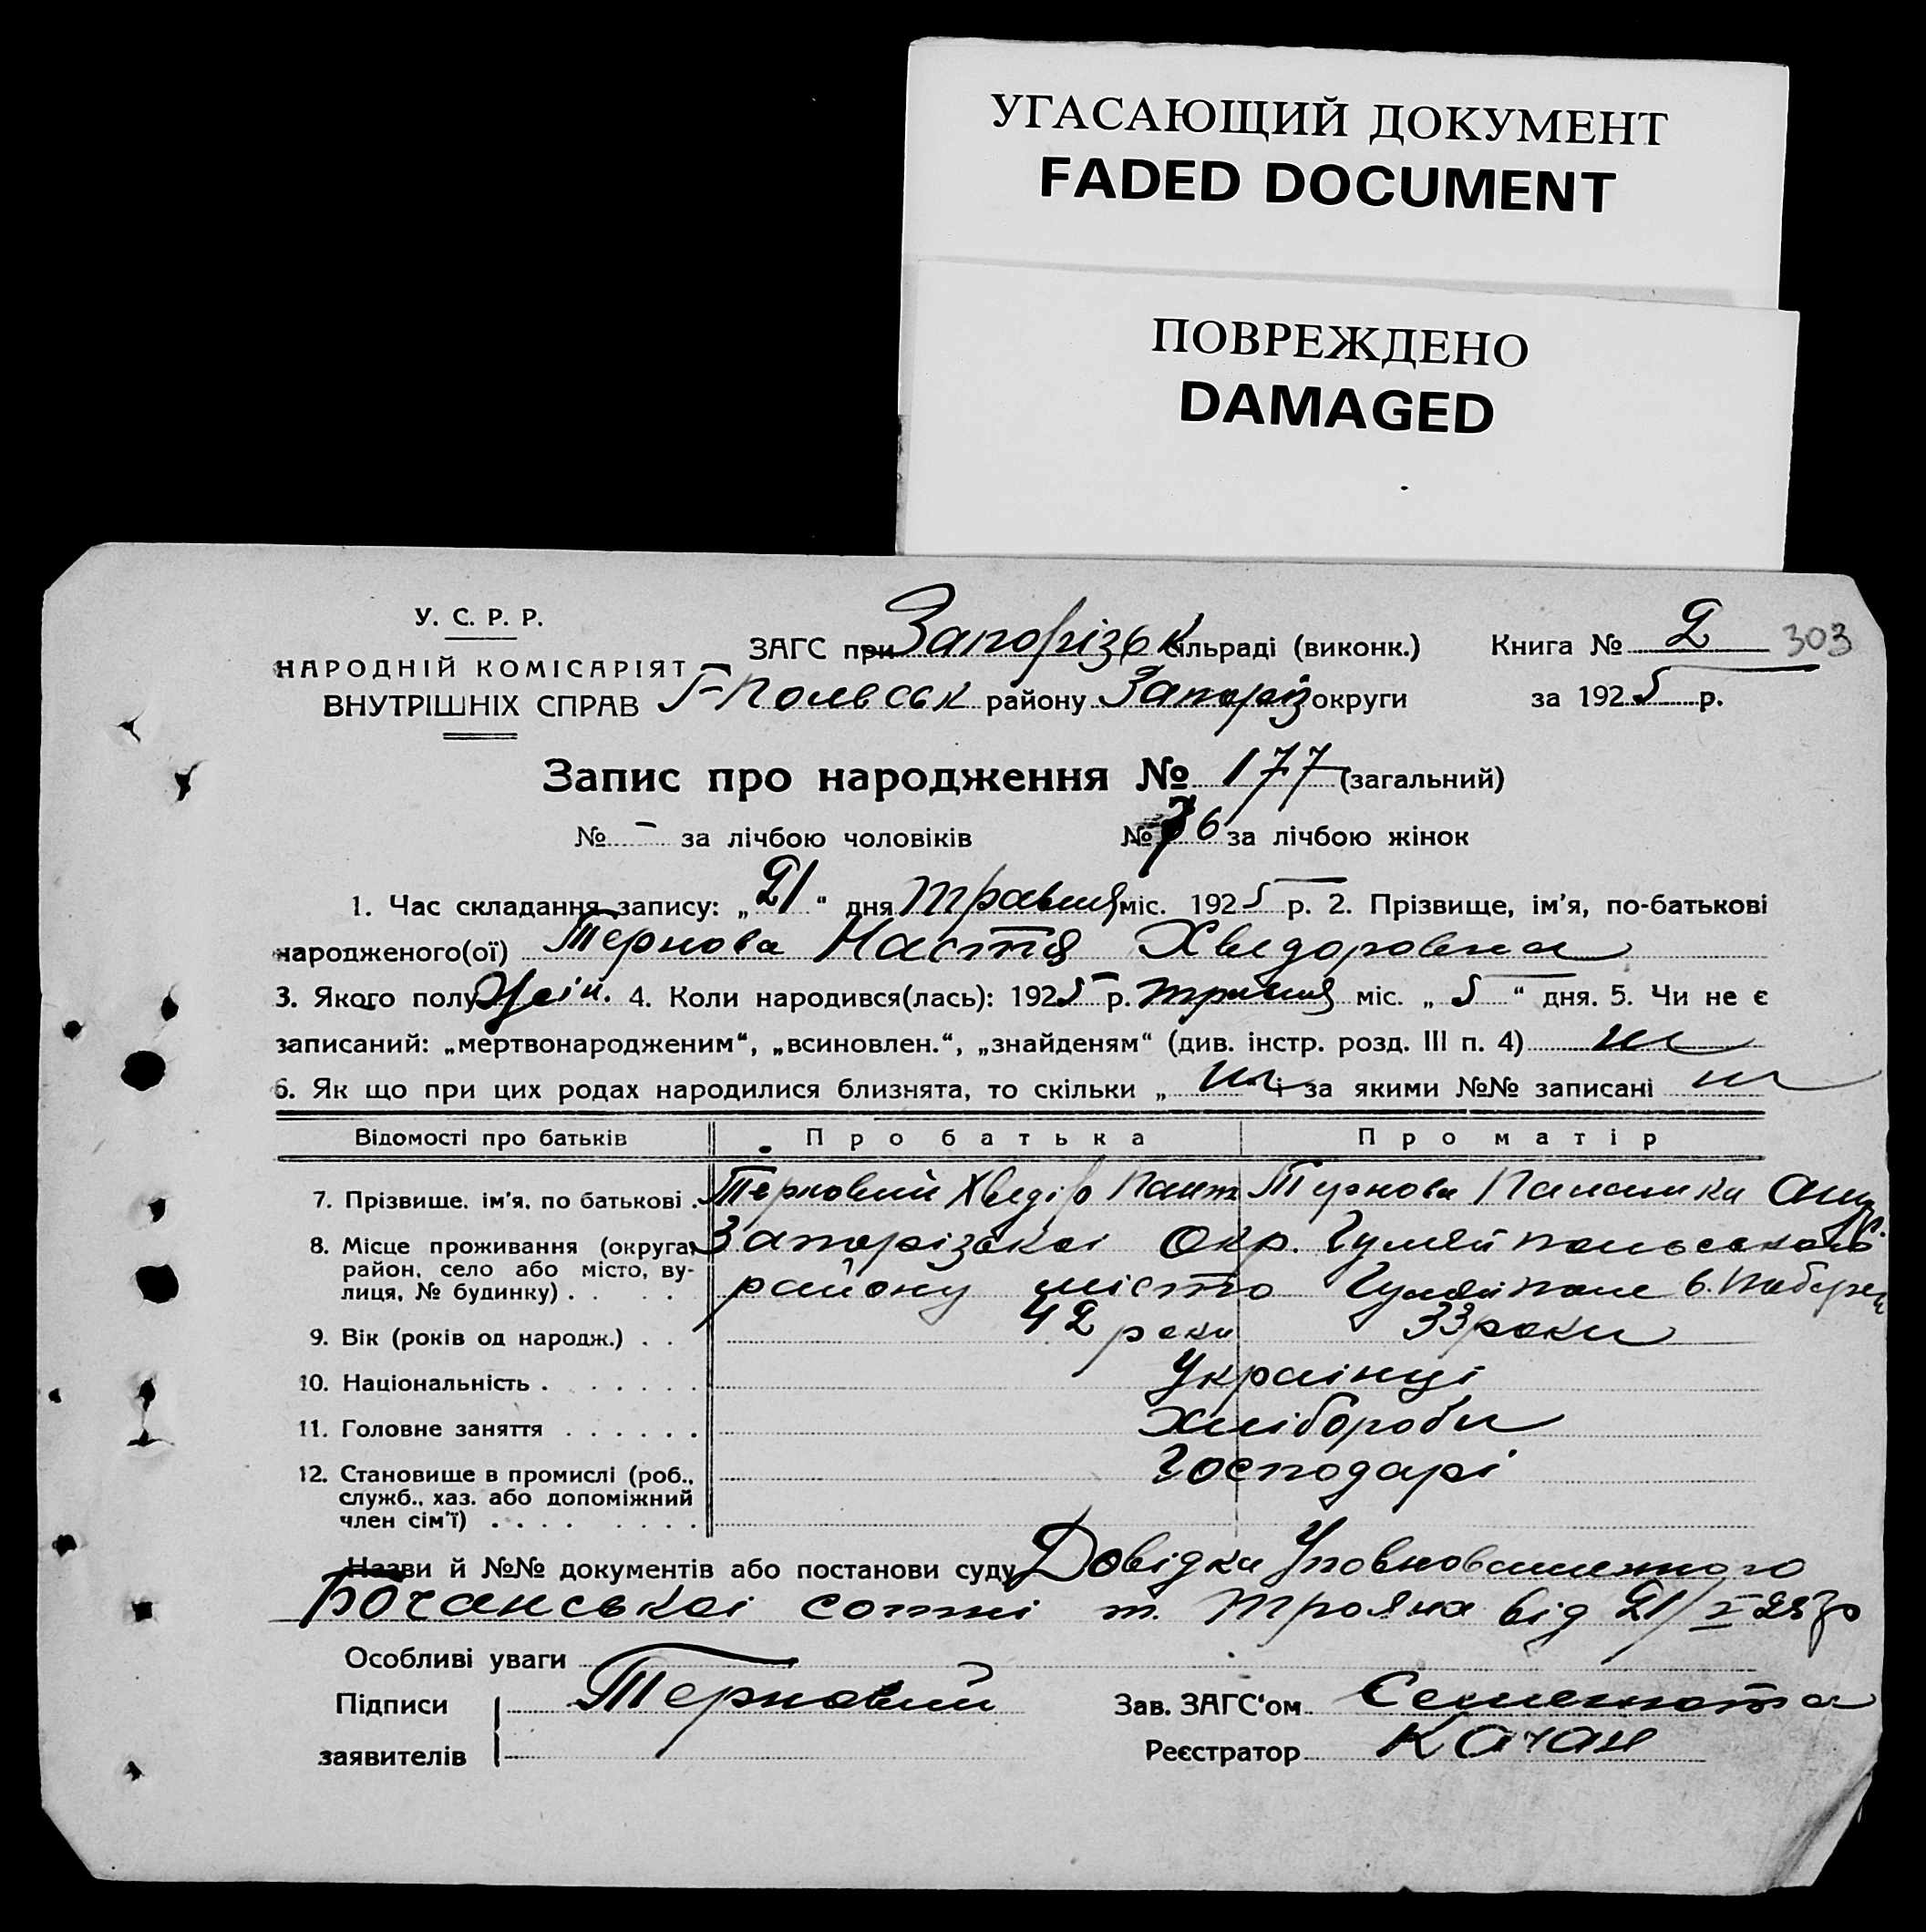 УГАСАЮЩИЙ ДОКУМЕНТ
FADED DOCUMENT
ПОВРЕЖДЕНО
DAMAGED
У. С. Р. Р.
НАРОДНІЙ КОМІСАРІЯТ
ВНУТРІШНІХ СПРАВ
ЗАГС при Запорізьк сільраді (виконк.) Книга № 2 303
Г-Польськ району Запоріз округи за 1925 р.
Запис про народження № 177 (загальний)
№ - за лічбою чоловіків № 76 за лічбою жінок
1. Час складання запису: „21" дня травня міс. 1925 р. 2. Прізвище, ім'я, по-батькові
народженого(ої) Тернова Настя Хведоровна
3. Якого полу жін. 4. Коли народився(лась): 1925 р. травня міс. „5" дня. 5. Чи не є
записаний: „мертвонародженим", „всиновлен.", „знайденям" (див. інстр. розд. III п. 4) ні
6. Як що при цих родах народилися близнята, то скільки „ ні і за якими №№ записані ні
Відомості про батьків Про батька Про матір
7. Прізвище, ім'я, по батькові . Терновий Хведір Пант Тернова Палашка Анд
8. Місце проживання (округа, Запорізькоі Окр. Гуляйпольського
район, село або місто, ву-
лиця, № будинку) . . . району місто Гуляйполе
9. Вік (років од народж.) . . 42 роки 33 роки
10. Національність . . . . . . . Українці
11. Головне заняття . . . . . . Хлібороби
12. Становище в промислі (роб., Господарі
служб., хаз. або допоміжний
член сім'ї) . . . . . . . .
Назви й №№ документів або постанови суду Довідка Уповноваженного
Бочанськоі сотні т. Трояна від 21/V 25 р
Особливі уваги
Підписи Терновий Зав. ЗАГС'ом
заявителів Реєстратор Качан